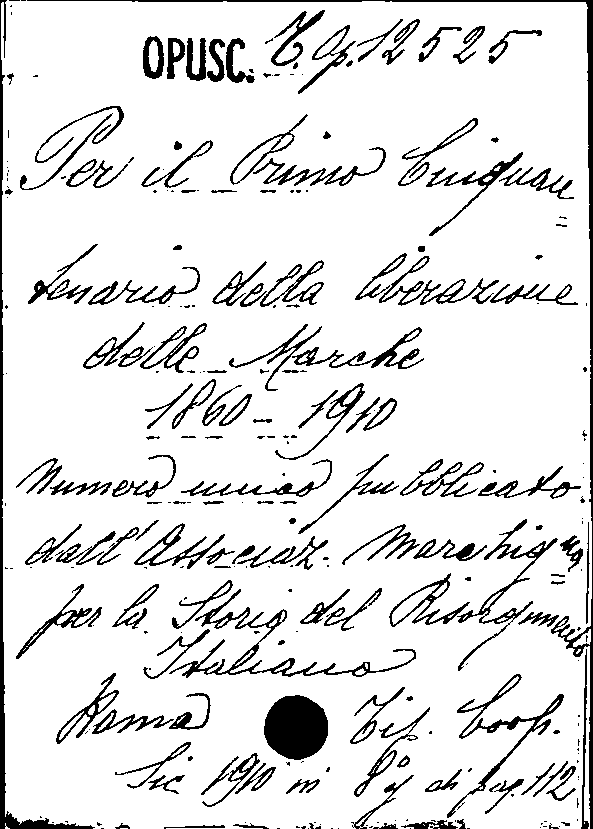 OPUSC. T. Op. 12525
Per il Primo Cinquan=
tenario della liberazione
delle Marche
1860 - 1910
Numero unico pubblicato
dall'Associaz. Marchig=na
per la Storia del Risorgimento
Italiano
Roma Tip. Coop.
1910 in 8º di pag. 112